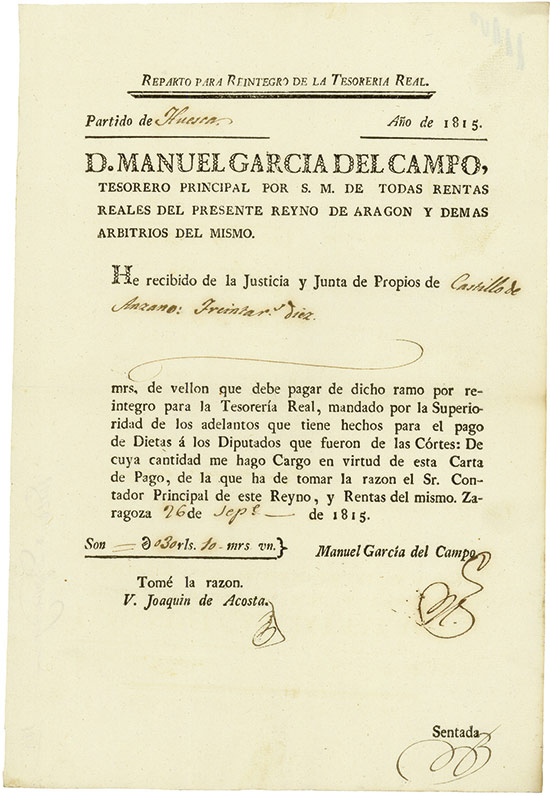 REPARTO PARA REINTEGRO DE LA TESORERIA REAL.
Partido de Huesca. Año de 1815.
D. MANUEL GARCIA DEL CAMPO,
TESORERO PRINCIPAL POR S. M. DE TODAS RENTAS
REALES DEL PRESENTE REYNO DE ARAGON Y DEMAS
ARBITRIOS DEL MISMO.
He recibido de la Justicia y Junta de Propios de Castillo de
Anzano: Treinta r.s diez
mrs. de vellon que debe pagar de dicho ramo por re-
integro para la Tesorería Real, mandado por la Superio-
ridad de los adelantos que tiene hechos para el pago
de Dietas á los Diputados que fueron de las Córtes: De
cuya cantidad me hago Cargo en virtud de esta Carta
de Pago, de la que ha de tomar la razon el Sr. Con-
tador Principal de este Reyno, y Rentas del mismo. Za-
ragoza 26 de Sep.e de 1815.
Son 030 rls. 10 mrs vn.} Manuel García del Campo.
Tomé la razon.
V. Joaquin de Acosta.
Sentada